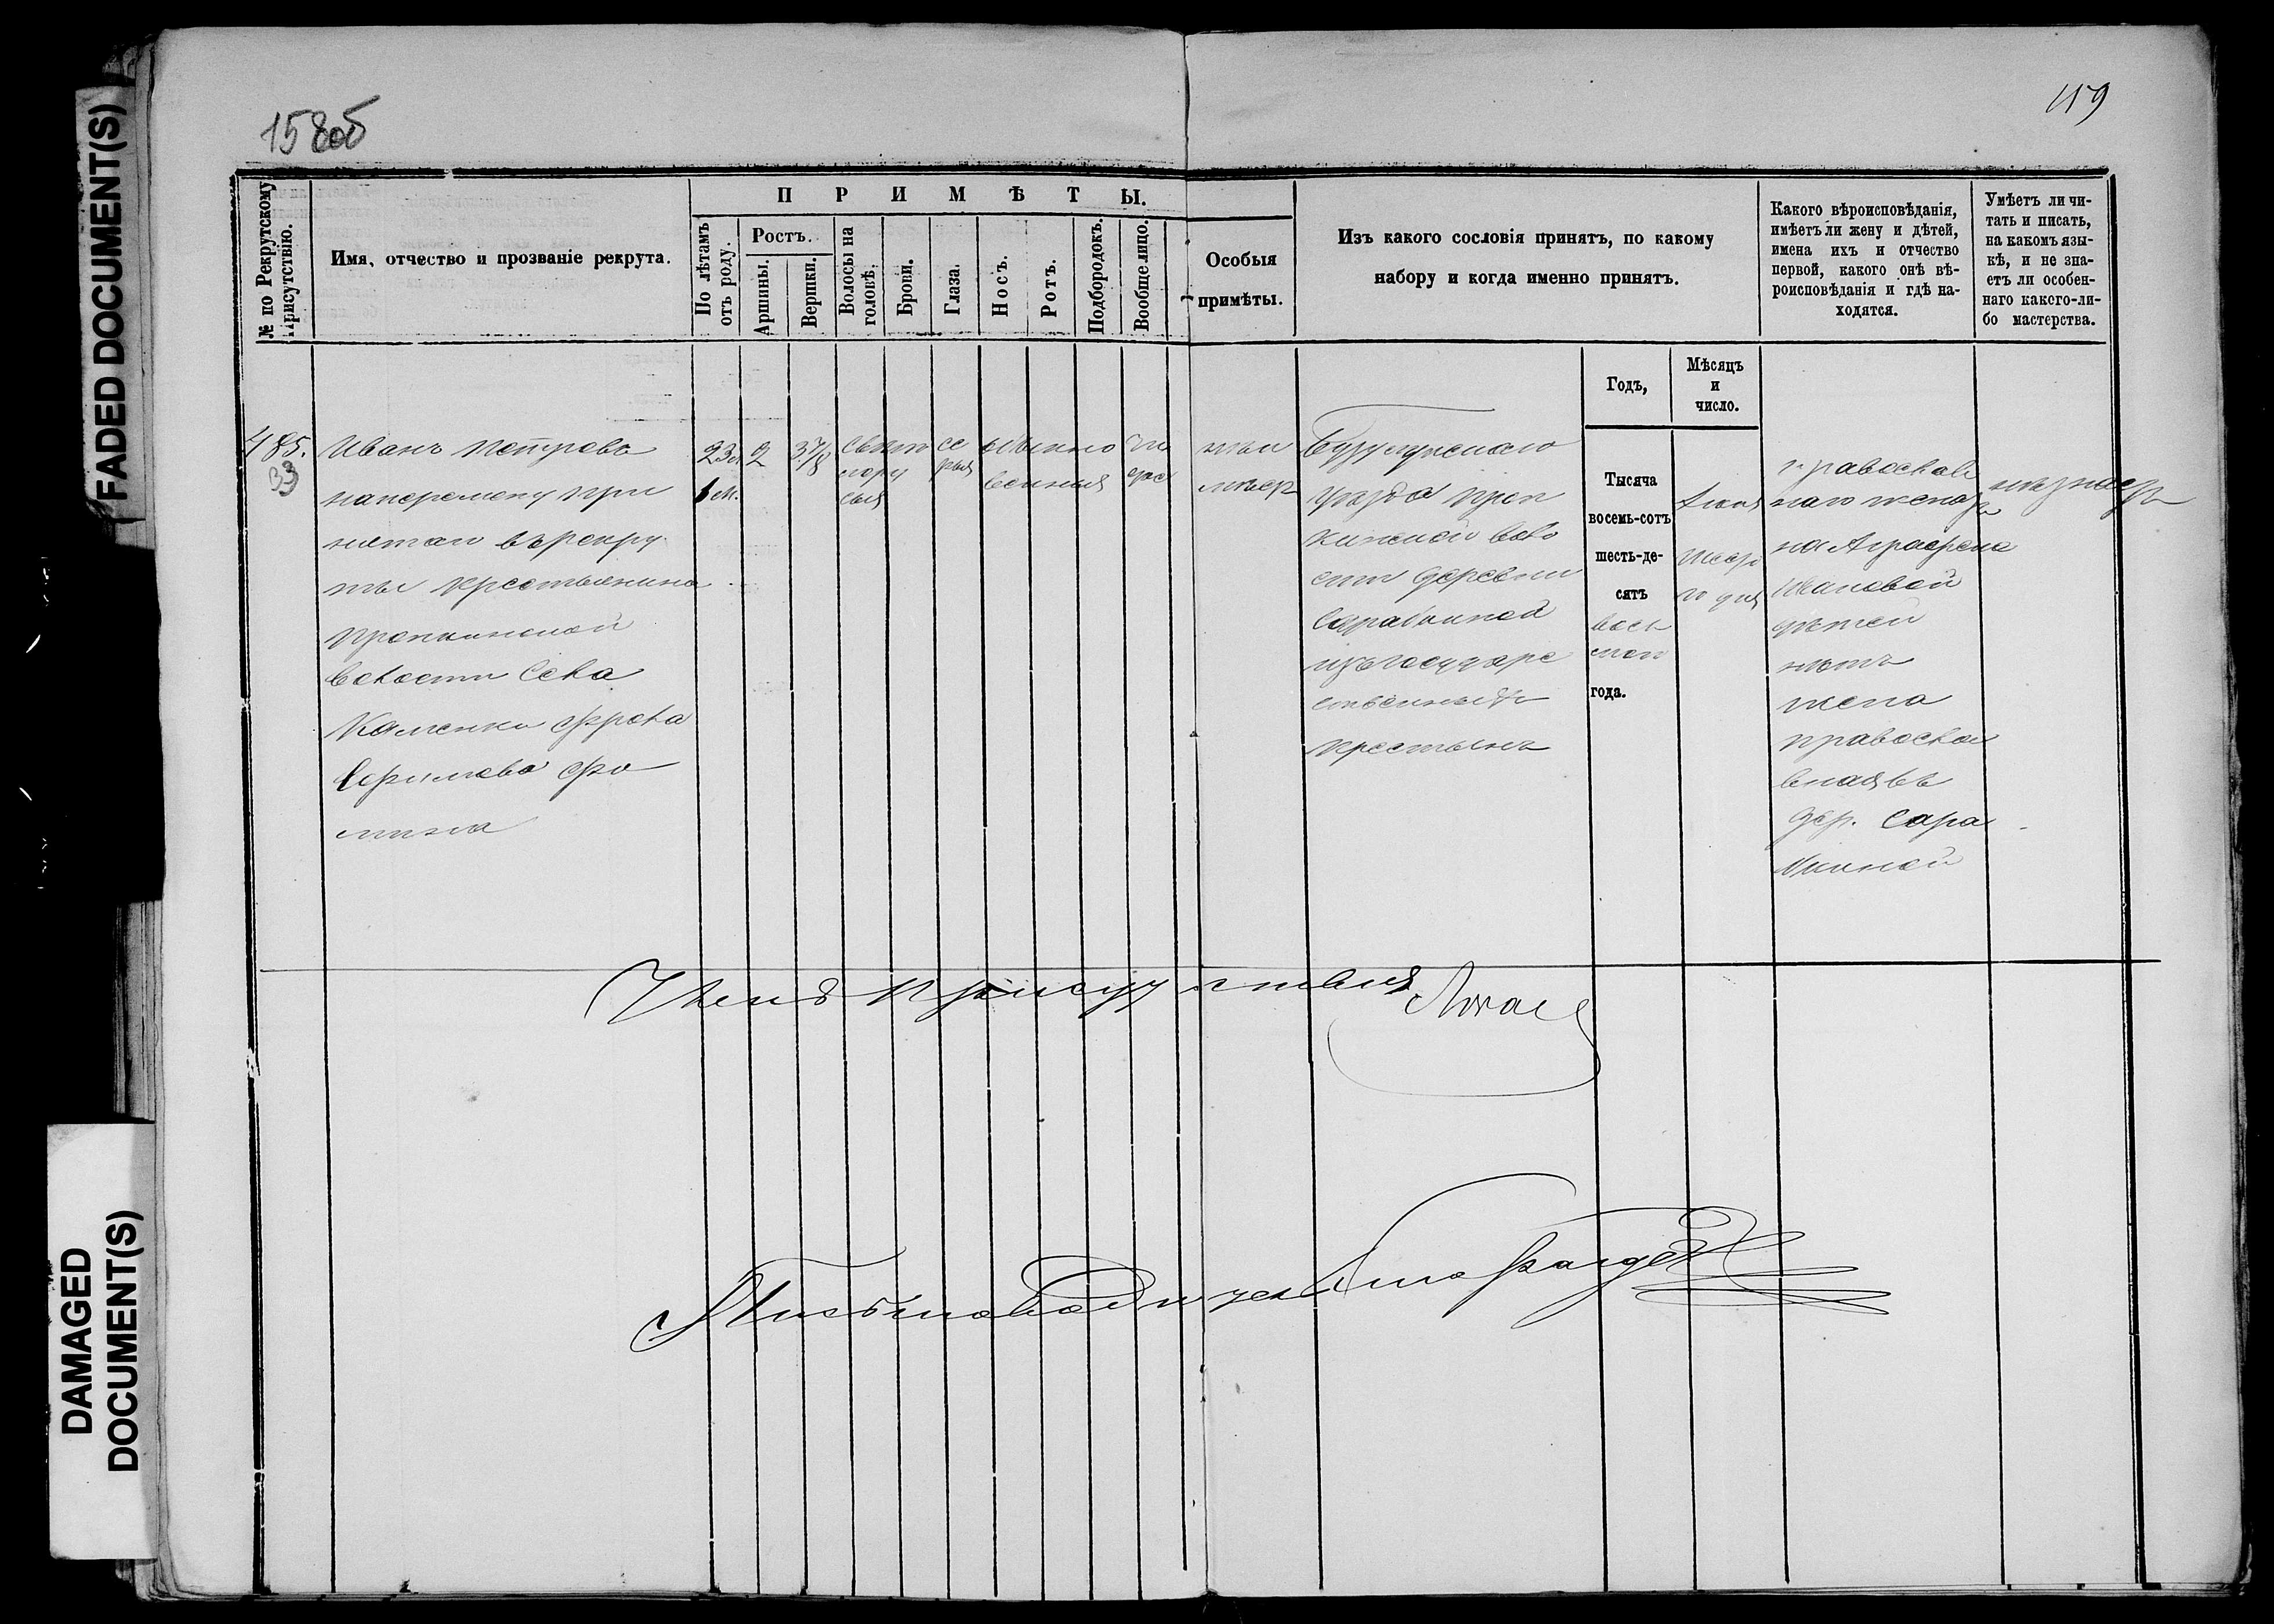 FADED DOCUMENT(S)
DAMAGED
DOCUMENT(S)
158об
119
№ по Рекрутскому
Присутствію.
Имя, отчество и прозваніе рекрута.
ПРИМѢТЫ.
По лѣтамъ
отъ роду.
Ростъ.
Аршины.
Вершки.
Волосы на
головѣ.
Брови.
Глаза.
Носъ.
Ротъ.
Подбородокъ.
Вообще лицо.
Особыя
примѣты.
Изъ какого сословія принятъ, по какому
набору и когда именно принятъ.
Какого вѣроисповѣданія,
имѣетъ ли жену и дѣтей,
имена ихъ и отчество
первой, какого онѣ вѣ-
роисповѣданія и гдѣ на-
ходятся.
Умѣетъ ли чи-
тать и писать,
на какомъ язы-
кѣ, и не зна-
етъ ли особен-
наго какого-ли-
бо мастерства.
485.
33
Иванъ Петровъ
наперемену при
нетаго въ рекру
ты крестьянина
Пронькинской
волости села
Каменки Фрола
Ефимова Фо
мина
23 л
1 м.
2
3 7/8
светло
лору
сыя
се
рыя
обыкно
венныя
чи
стое
неи
меетъ
Бузулукскаго
уезда Прон
кинской воло
сти деревни
Сарайкиной
изъ государс
ственныхъ
крестьянъ
Годъ,
Тысяча
восемь-сотъ
шесть-де-
сятъ
вось
маго
года.
Мѣсяцъ
и
число.
дня
православ
наго женатъ
на Аграфене
Ивановой
детей
нетъ
жена
православ
ная въ
дер. Сара
йкиной
незнаетъ
Членъ присутствия
Письмоводитель